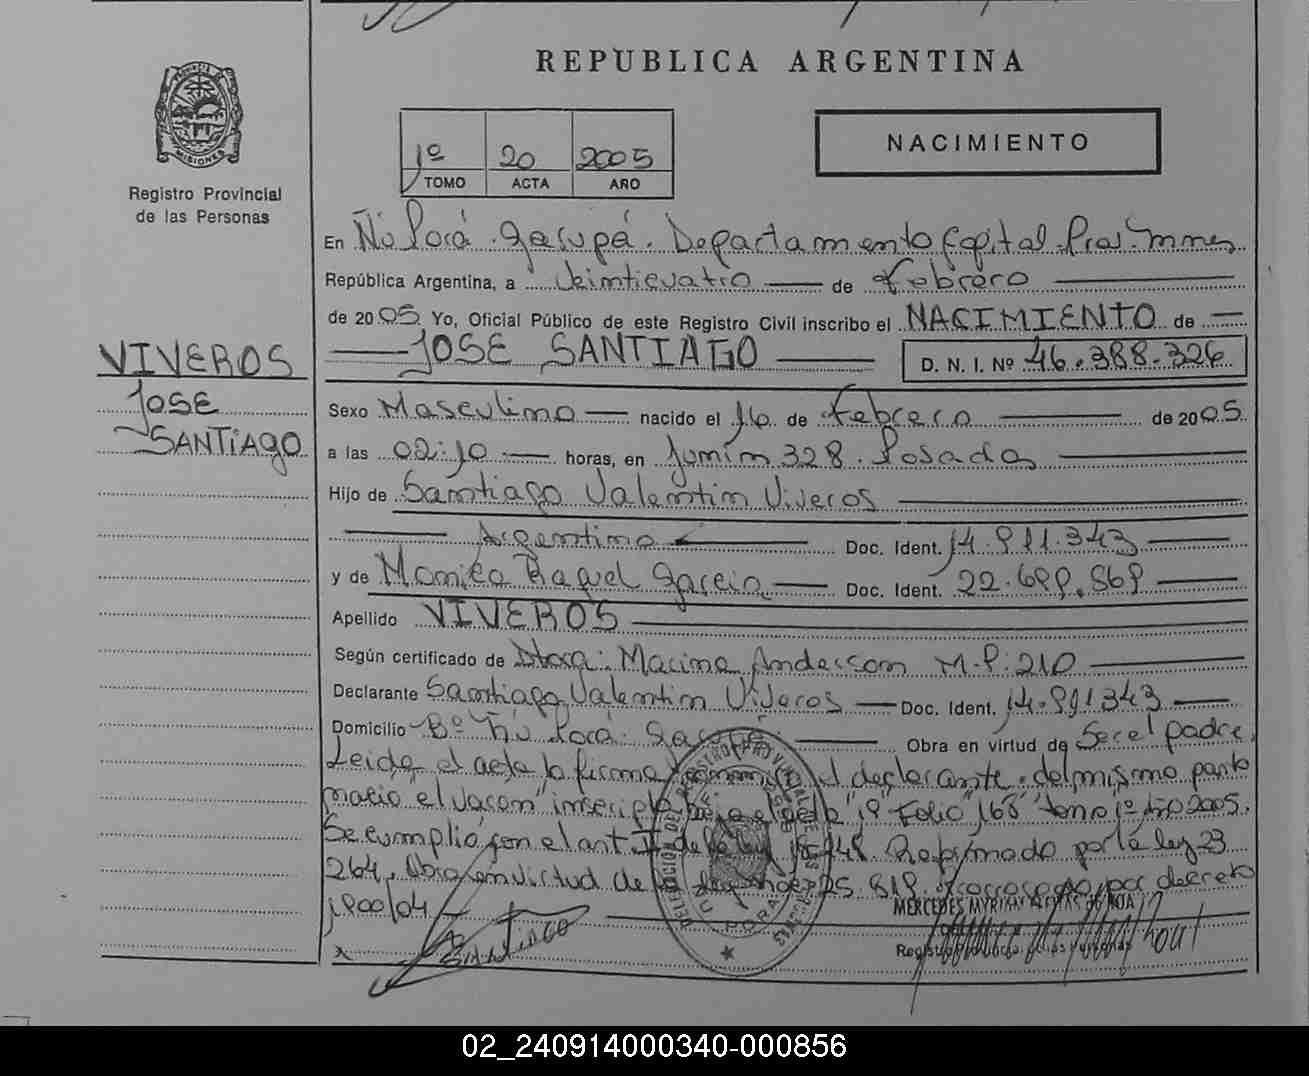 REPUBLICA ARGENTINA
PROVINCIA DE MISIONES
Registro Provincial
de las Personas
1º 20 2005
TOMO ACTA AÑO
NACIMIENTO
En Ñu Porá. Garupá. Departamento Capital. Prov. Mnes
República Argentina, a Veinticuatro de Febrero
de 2005 Yo, Oficial Público de este Registro Civil inscribo el NACIMIENTO de
JOSE SANTIAGO D. N. I. Nº 46.388.326
VIVEROS
JOSE
SANTIAGO
Sexo Masculino nacido el 16 de Febrero de 2005
a las 02:10 horas, en Junín 328. Posadas
Hijo de Santiago Valentin Viveros
Argentino Doc. Ident. 14.911.343
y de Monica Raquel Garcia Doc. Ident. 22.699.869
Apellido VIVEROS
Según certificado de Dtora: Macina Andersson M.P. 210
Declarante Santiago Valentin Viveros Doc. Ident. 14.911343
Domicilio Bº Ñú Porá. Garupá Obra en virtud de Ser el padre.
Leida el acta la firma conmigo el declarante. del mismo parto
nacio el varon inscripto bajo el acta 19 Folio 163 tomo 1º año 2005.
Se cumplió con el art de la ley 18248. Reformado por la ley 23
264. Obra en virtud de la ley 25.819. por decreto
1900/04
x SANTIAGO
DELEGACION DEL REGISTRO PROVINCIAL DE LAS PERSONAS
ÑU PORA
MERCEDES MYRIAM
02_240914000340-000856